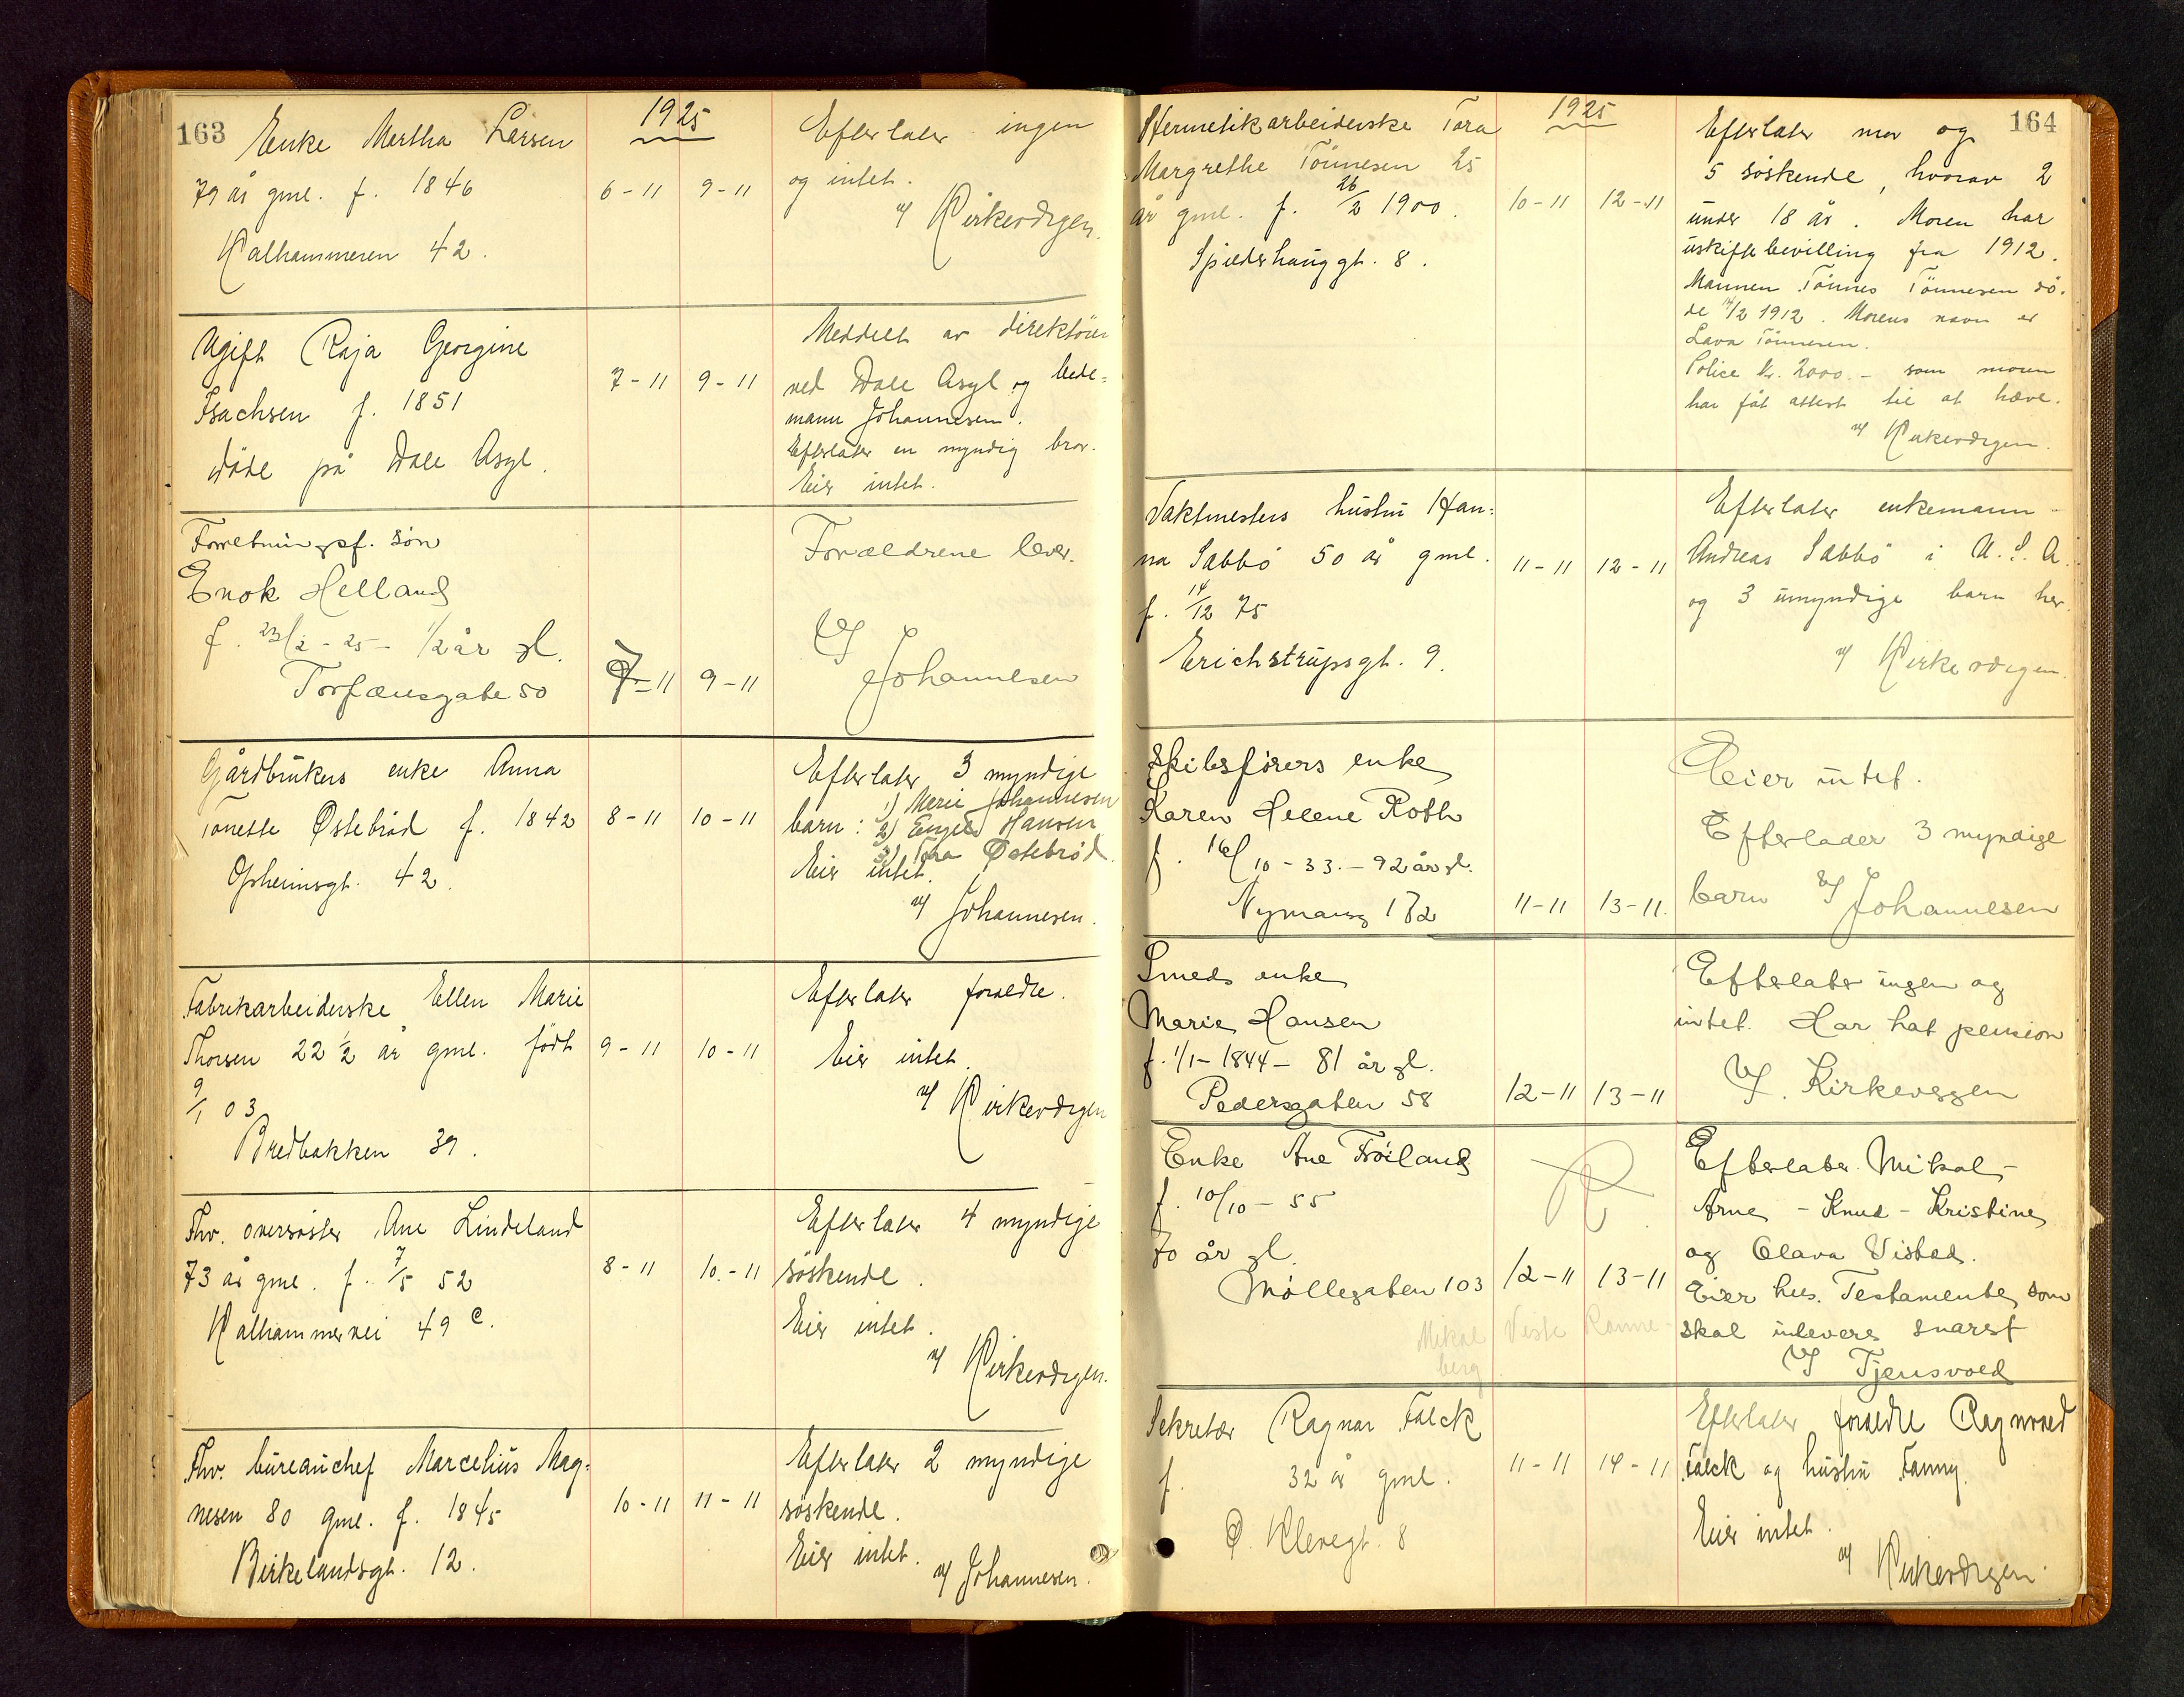 163
1925
Enke Martha Larsen
79 år gml. f. 1846
Kalhammeren 42.
6-11 9-11
Efterlater ingen
og intet.
v/ Kirkevergen.
Ugift Raja Georgine
Isachsen f. 1851
døde på Dale Asyl.
7-11 9-11
Meddelt av direktören
ved Dale Asyl og bede=
mann Johannesen.
Efterlater en myndig bror.
Eier intet.
Forretningsf. søn
Enok Helland
f. 23/2 - 25 - 1/2 år gl.
Torfæusgate 50
7-11 9-11
Forældrene lever.
v/ Johannesen
Gårdbrukers enke Anna
Tonette Østebrød f. 1842
Opheimsgt. 42.
8-11 10-11
Efterlater 3 myndige
barn: 1) Marie Johannesen
2) Engel Hansen
3) Tora Østebrød
Eier intet.
v/ Johannesen.
Fabrikarbeiderske Ellen Marie
Thorsen 22 1/2 år gml. født
9/1 03
Bredbakken 39.
9-11 10-11
Efterlater foreldre.
Eier intet.
v/ Kirkevergen
Fhv. oversøster Ane Lindeland
73 år gml. f. 7/5 52
Kalhammervei 49 c.
8-11 10.-11
Efterlater 4 myndige
söskende.
Eier intet.
v/ Kirkevergen.
Fhv. bureauchef Marcelius Mag=
nesen 80 gml. f. 1845
Birkelandsgt. 12.
10-11 11-11
Efterlater 2 myndige
søskende.
Eier intet.
v/ Johannesen.
164
1925
Hermetikarbeiderske Tora
Margrethe Tönnesen 25
år gml. f. 26/2 1900.
Spilderhauggt. 8.
10-11 12-11
Efterlater mor og
5 söskende, hvorav 2
under 18 år. Moren har
uskiftebevilling fra 1912.
Mannen Tönnes Tönnesen dö.
de 14/2 1912. Morens navn er
Lava Tönnesen.
Police kr. 2000.- som moren
har fåt attest til at hæve.
v/ Kirkevergen.
Vaktmesters hustru Han=
na Sabbö 50 år gml.
f. 14/12 75
Erichstrupsgt. 9.
11-11 12-11
Efterlater enkemann
Andreas Sabbö i U.S.A.
og 3 umyndige barn her.
v/ Kirkevergen.
Skibsførers enke
Karen Helene Roth
f. 16/10 - 33. - 92 år gl.
Nymansg 172
11-11 13-11.
Eier intet.
Efterlader 3 myndige
barn v/ Johannesen
Smeds enke
Marie Hansen
f. 1/1 - 1844 - 81 år gl.
Pedersgaten 58
12-11 13-11
Efterlater ingen og
intet. Har hat pension
v/. Kirkevergen
Enke Ane Frøiland
f. 10/10 - 55
70 år gl.
Møllegaten 103
12-11 13-11
Mikal Viste Ranne-
berg
Efterlater Mikal -
Arne - Knud - Kristine
og Olava Vistad.
Eier hus. Testamente som
skal inleveres snarest
v/ Tjensvold
Sekretær Ragnar Falck
f. 32 år gml.
O. Klevegt. 8
11-11 14-11
Efterlater foreldre Ragnvald
Falck og hustru Fanny.
Eier intet.
v/ Kirkevergen.